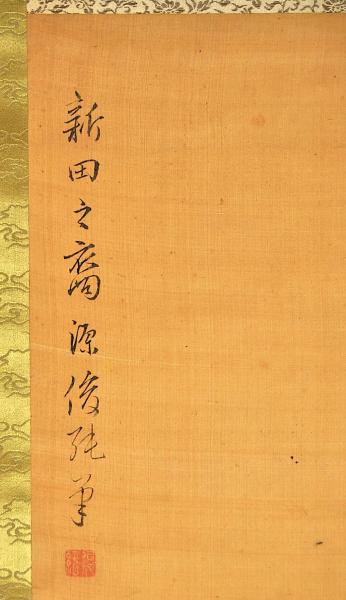 新田之裔源俊純筆